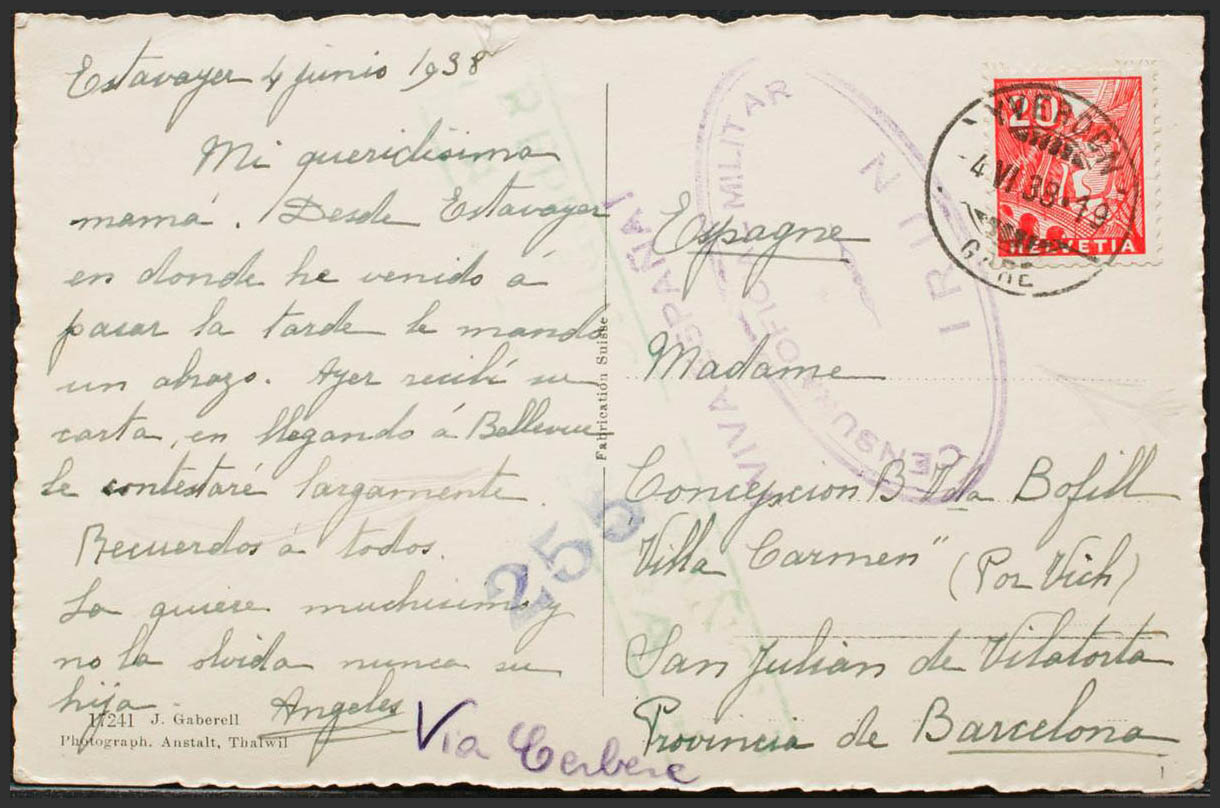 Estavayer 4 junio 1938
Mi queridisima
mamá. Desde Estavayer
en donde he venido á
pasar la tarde le mando
un abrazo. Ayer recibí su
carta, en llegando á Bellevue
le contestaré largamente.
Recuerdos á todos.
La quiere muchisimo y
no la olvida nunca su
hija.
Angeles
17241 J. Gaberell
Photograph. Anstalt, Thalwil
Via Cerbere
255
Fabrication Suisse
20
HELVETIA
YVERDON
-4.VI.38.19
GARE
¡VIVA ESPAÑA!
CENSURA
MILITAR
IRUN
Espagne
Madame
Concepcion B. Vda Bofill
Villa Carmen" (Por Vich)
San Julian de Vilatorta
Provincia de Barcelona